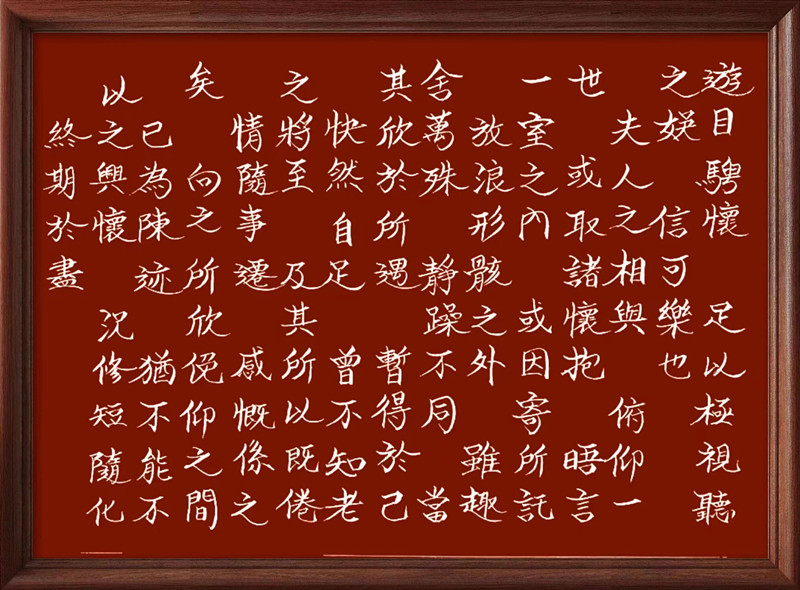 遊目騁懷 足以極視聽
之娛 信可樂也
夫人之相與 俯仰一
世 或取諸懷抱 晤言
一室之內 或因寄所託
放浪形骸之外 雖趣
舍萬殊 靜躁不同 當
其欣於所遇 暫得於己
快然自足 曾不知老
之將至 及其所以既倦
情隨事遷 感慨係之
矣 向之所欣俛仰之間
已為陳迹 猶不能不
以之興懷 況修短隨化
終期於盡